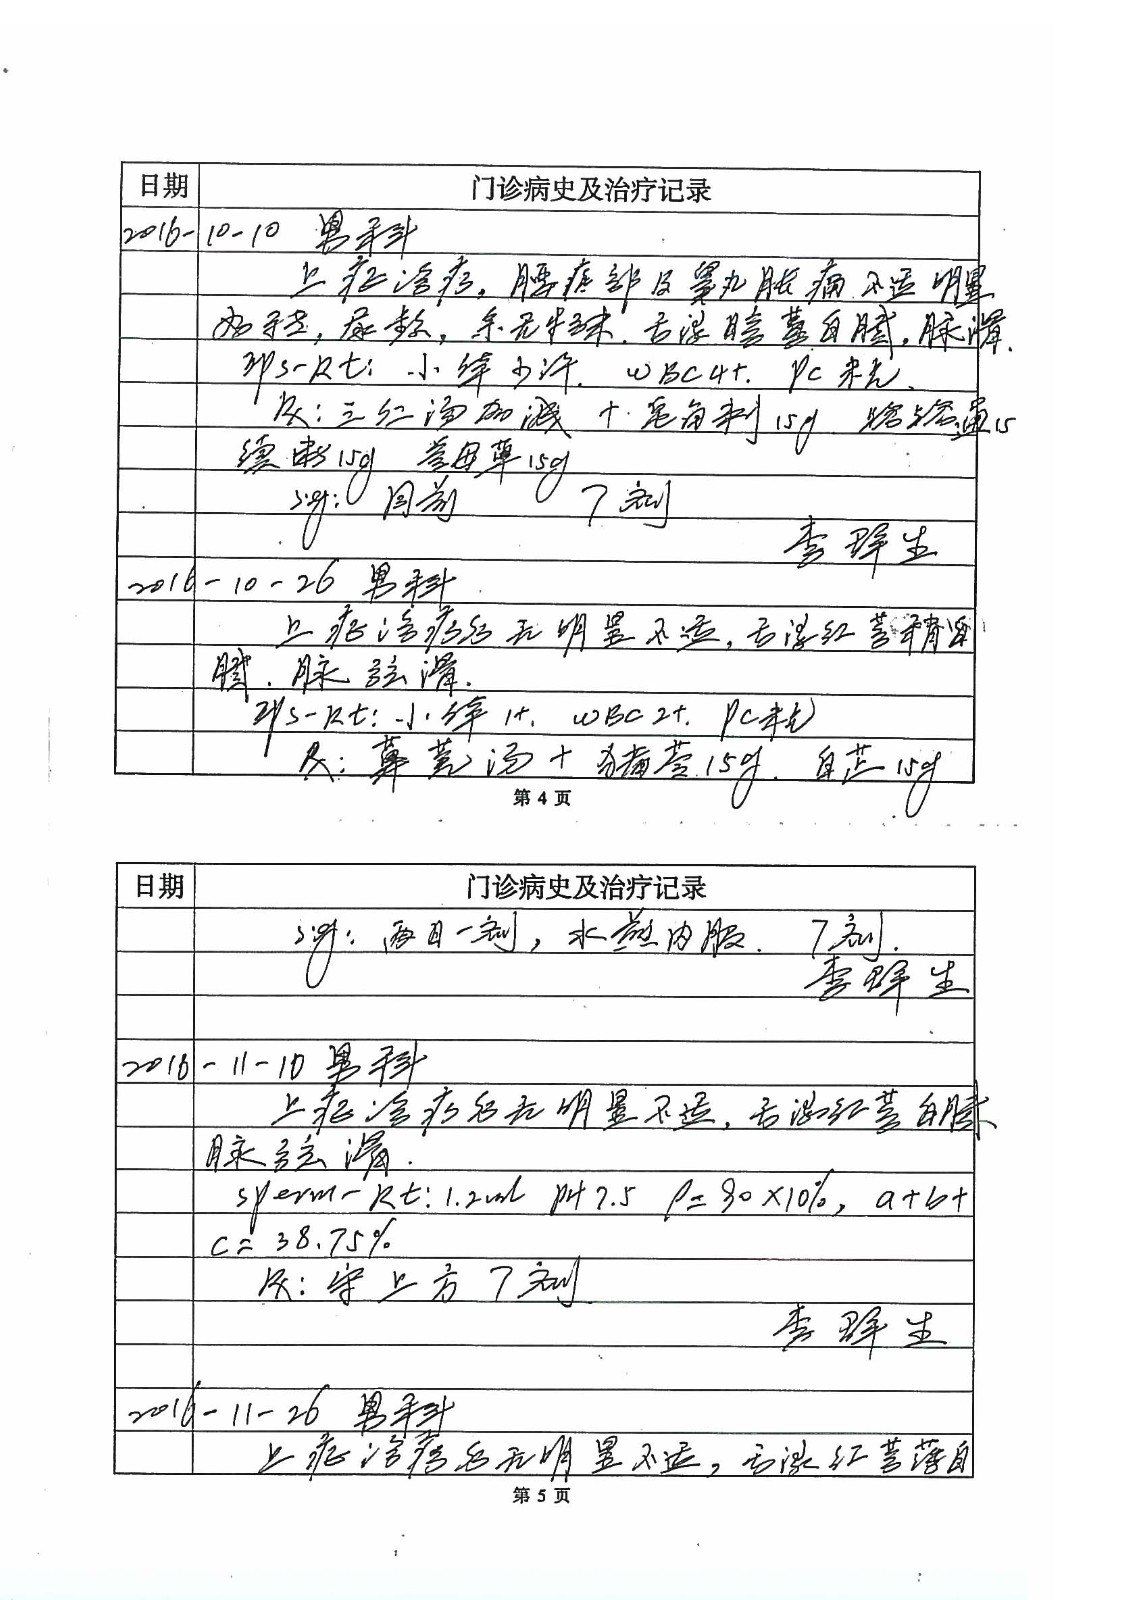 日期 门诊病史及治疗记录
2016-10-10 男科
上症治疗，腰痠部及睾丸胀痛不适明显
好转，尿频，余无特殊．舌淡暗苔白腻，脉滑．
EPS-Rt：小体少许．WBC4+．PC未见．
Rx：三仁汤加减＋皂角刺15g 15
续断15g 益母草15g
sig：同前 7剂
李群生
2016-10-26 男科
上症治疗后无明显不适，舌淡红苔稍白
腻．脉弦滑．
EPS-Rt：小体1+．WBC2+．PC未见
Rx：萆薢汤＋猪苓15g．白芷15g
第 4 页
日期 门诊病史及治疗记录
sig：两日一剂，水煎内服．7剂．
李群生
2016-11-10 男科
上症治疗后无明显不适，舌淡红苔白腻
脉弦滑．
sperm-Rt：1.2ml PH7.5 P=30×10%，a+b+
c=38.75%
Rx：守上方7剂
李群生
2016-11-26 男科
上症治疗后无明显不适，舌淡红苔薄白
第 5 页